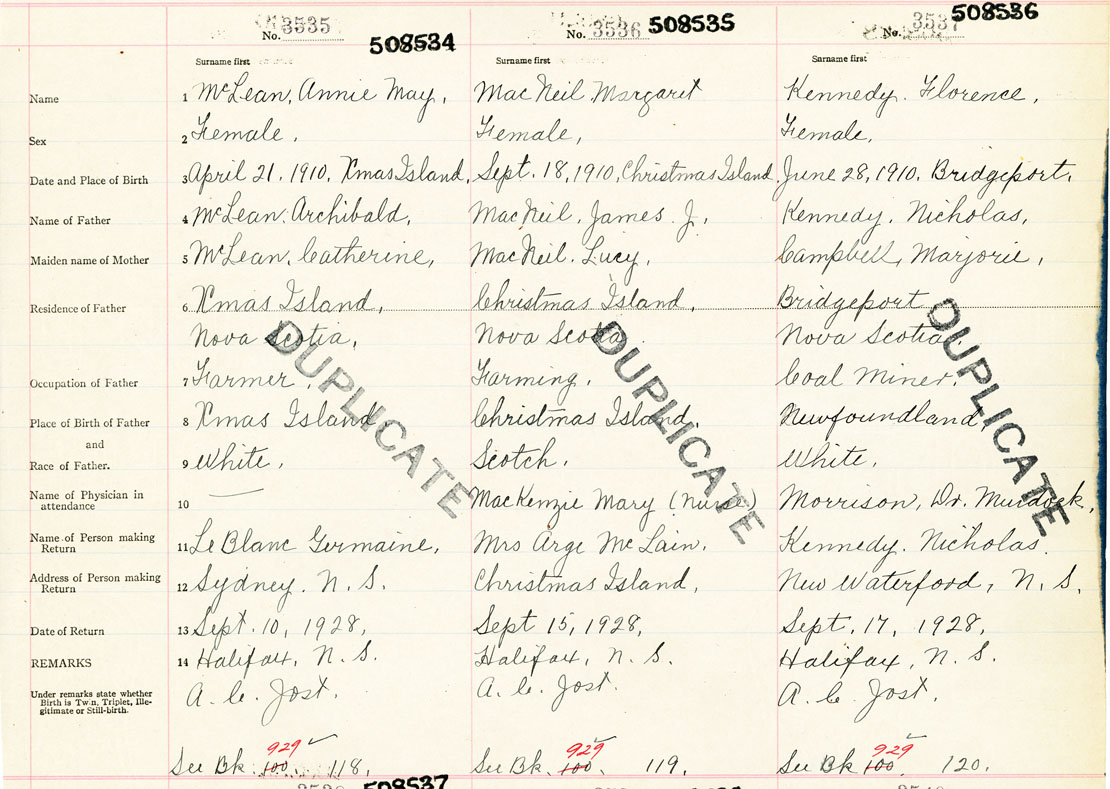 No. 3535 508534
No. 3536 508535
No. 3537 508536
Surname first Surname first Surname first
Name 1 McLean, Annie May, MacNeil Margaret Kennedy. Florence,
Sex 2 Female, Female, Female,
Date and Place of Birth 3 April 21, 1910, Xmas Island, Sept. 18, 1910, Christmas Island. June 28, 1910, Bridgeport,
Name of Father 4 McLean. Archibald, MacNeil, James J, Kennedy, Nicholas,
Maiden name of Mother 5 McLean, Catherine, MacNeil. Lucy, Campbell, Marjorie,
Residence of Father 6 Xmas Island, Christmas Island, Bridgeport
Nova Scotia, Nova Scotia Nova Scotia,
Occupation of Father 7 Farmer, Farming, Coal Miner.
Place of Birth of Father 8 Xmas Island Christmas Island, Newfoundland,
and
Race of Father. 9 White, Scotch. White,
Name of Physician in
attendance 10 MacKenzie Mary (Nurse) Morrison, Dr. Murdock,
Name of Person making
Return 11 LeBlanc Germaine, Mrs Arge McLain, Kennedy. Nicholas.
Address of Person making
Return 12 Sydney, N. S. Christmas Island, New Waterford, N. S.
Date of Return 13 Sept. 10, 1928, Sept 15, 1928, Sept, 17, 1928,
REMARKS 14 Halifax, N. S. Halifax, N. S. Halifax, N. S.
Under remarks state whether
Birth is Twin, Triplet, Ille-
gitimate or Still-birth.
A. C. Jost. A. C. Jost. A. C. Jost.
DUPLICATE DUPLICATE DUPLICATE
929 929 929
See Bk. 100. 118, See Bk. 100. 119, See Bk 100. 120.
508537